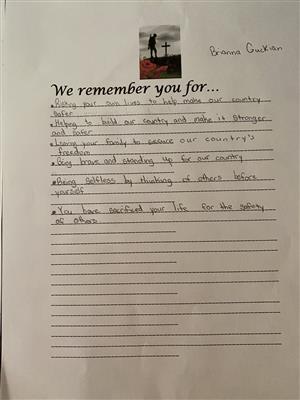 Brianna Guckian
We remember you for...
• Risking your own lives to help make our country
safer
• Helping to build our country and make it stronger
and safer
• Leaving your family to secure our country's
freedom
• Being brave and standing up for our country
• Being selfless by thinking of others before
yourself
• You have sacrificed your life for the safety
of others